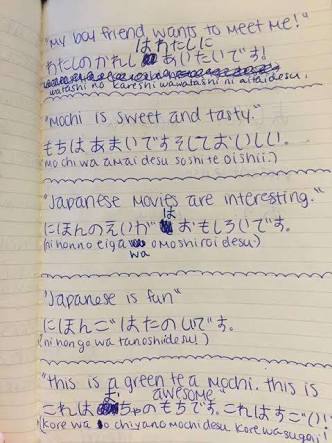 "My boy friend wants to meet me!"
はわたしに
わたしのかれし あいたいです!
watashi no kareshi wawatashi ni aitai desu.
"Mochi is sweet and tasty."
もちはあまいですそしておいしい。
(mochi wa amai desu soshite oishii.)
"Japanese movies are interesting."
は
にほんのえいが おもしろいです。
(nihonno eiga omoshiroi desu.)
wa
"Japanese is fun"
にほんごはたのしいです。
(nihongo wa tanoshidesu.)
"this is a green tea mochi. this is
awesome
これは ちゃのもちです。これはすごい
(kore wa chiyano mochi desu kore wa sugoi